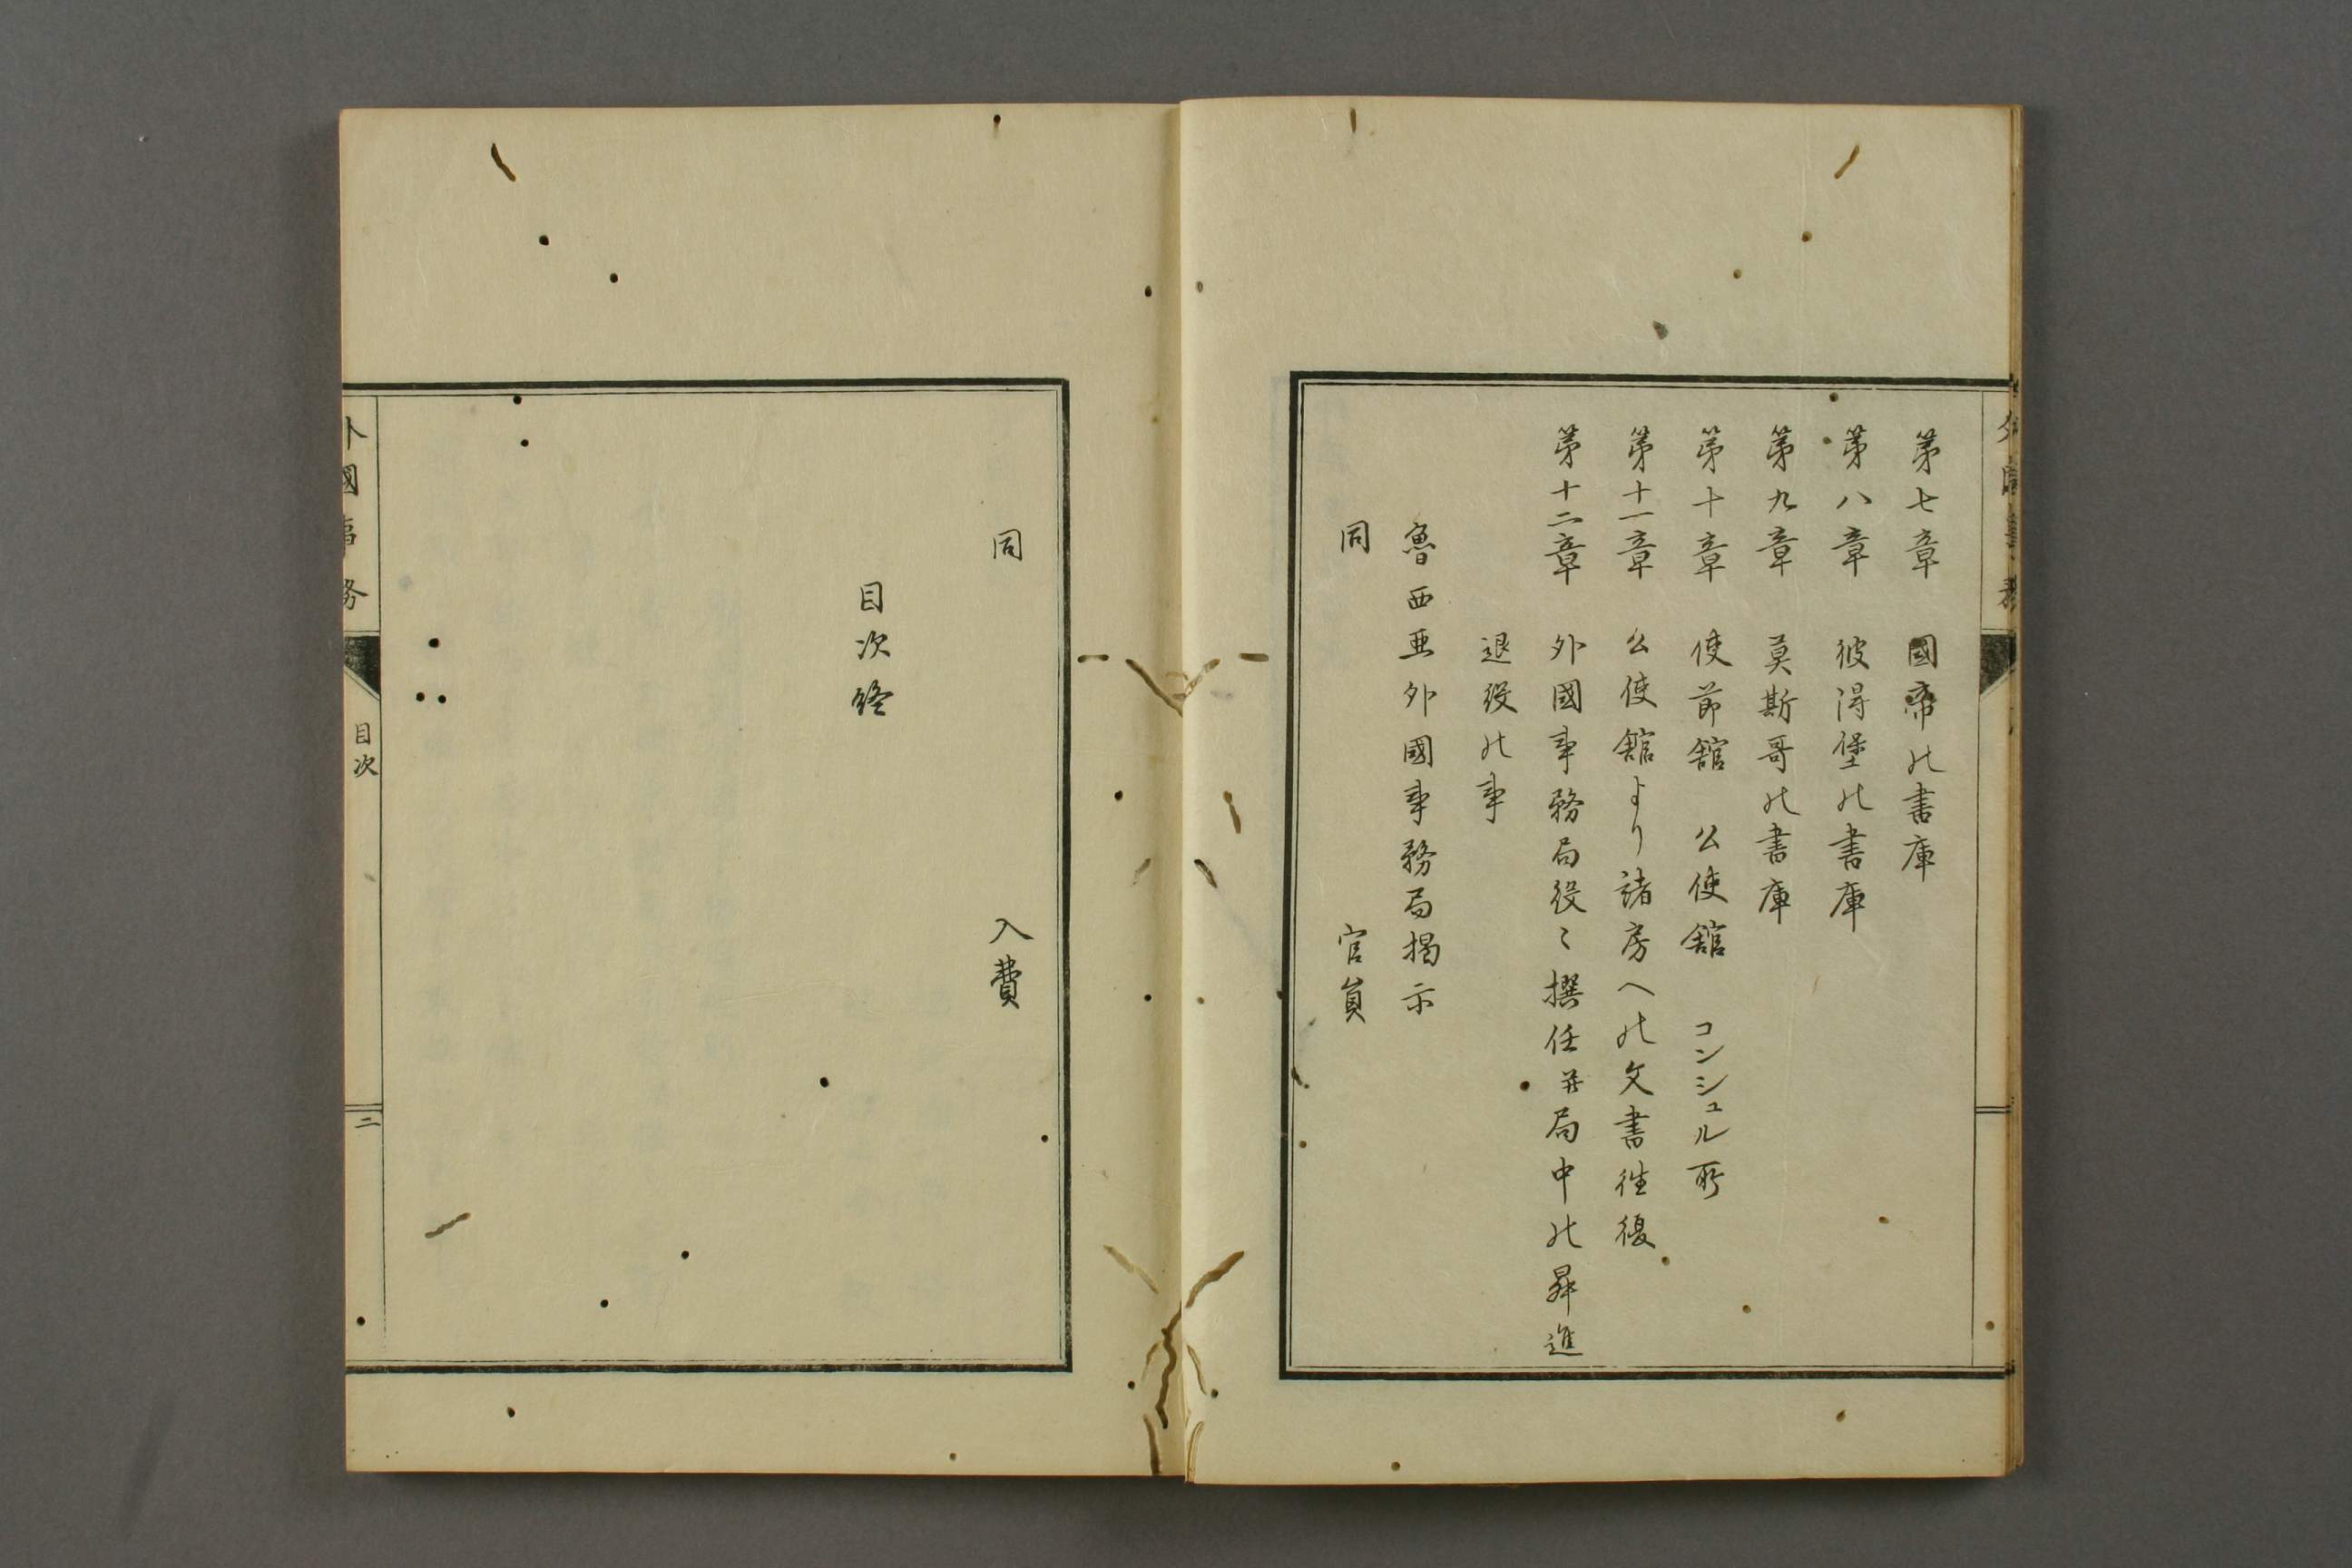 第七章　國帝の書庫
第八章　彼得堡の書庫
第九章　莫斯哥の書庫
第十章　使節舘　公使舘　コンシュル所
第十一章　公使舘より諸房への文書往復
第十二章　外國事務局役〻撰任并局中の昇進
退役の事
魯西亜外國事務局掲示
同　官員
同　入費
目次終
外國事務
目次
二